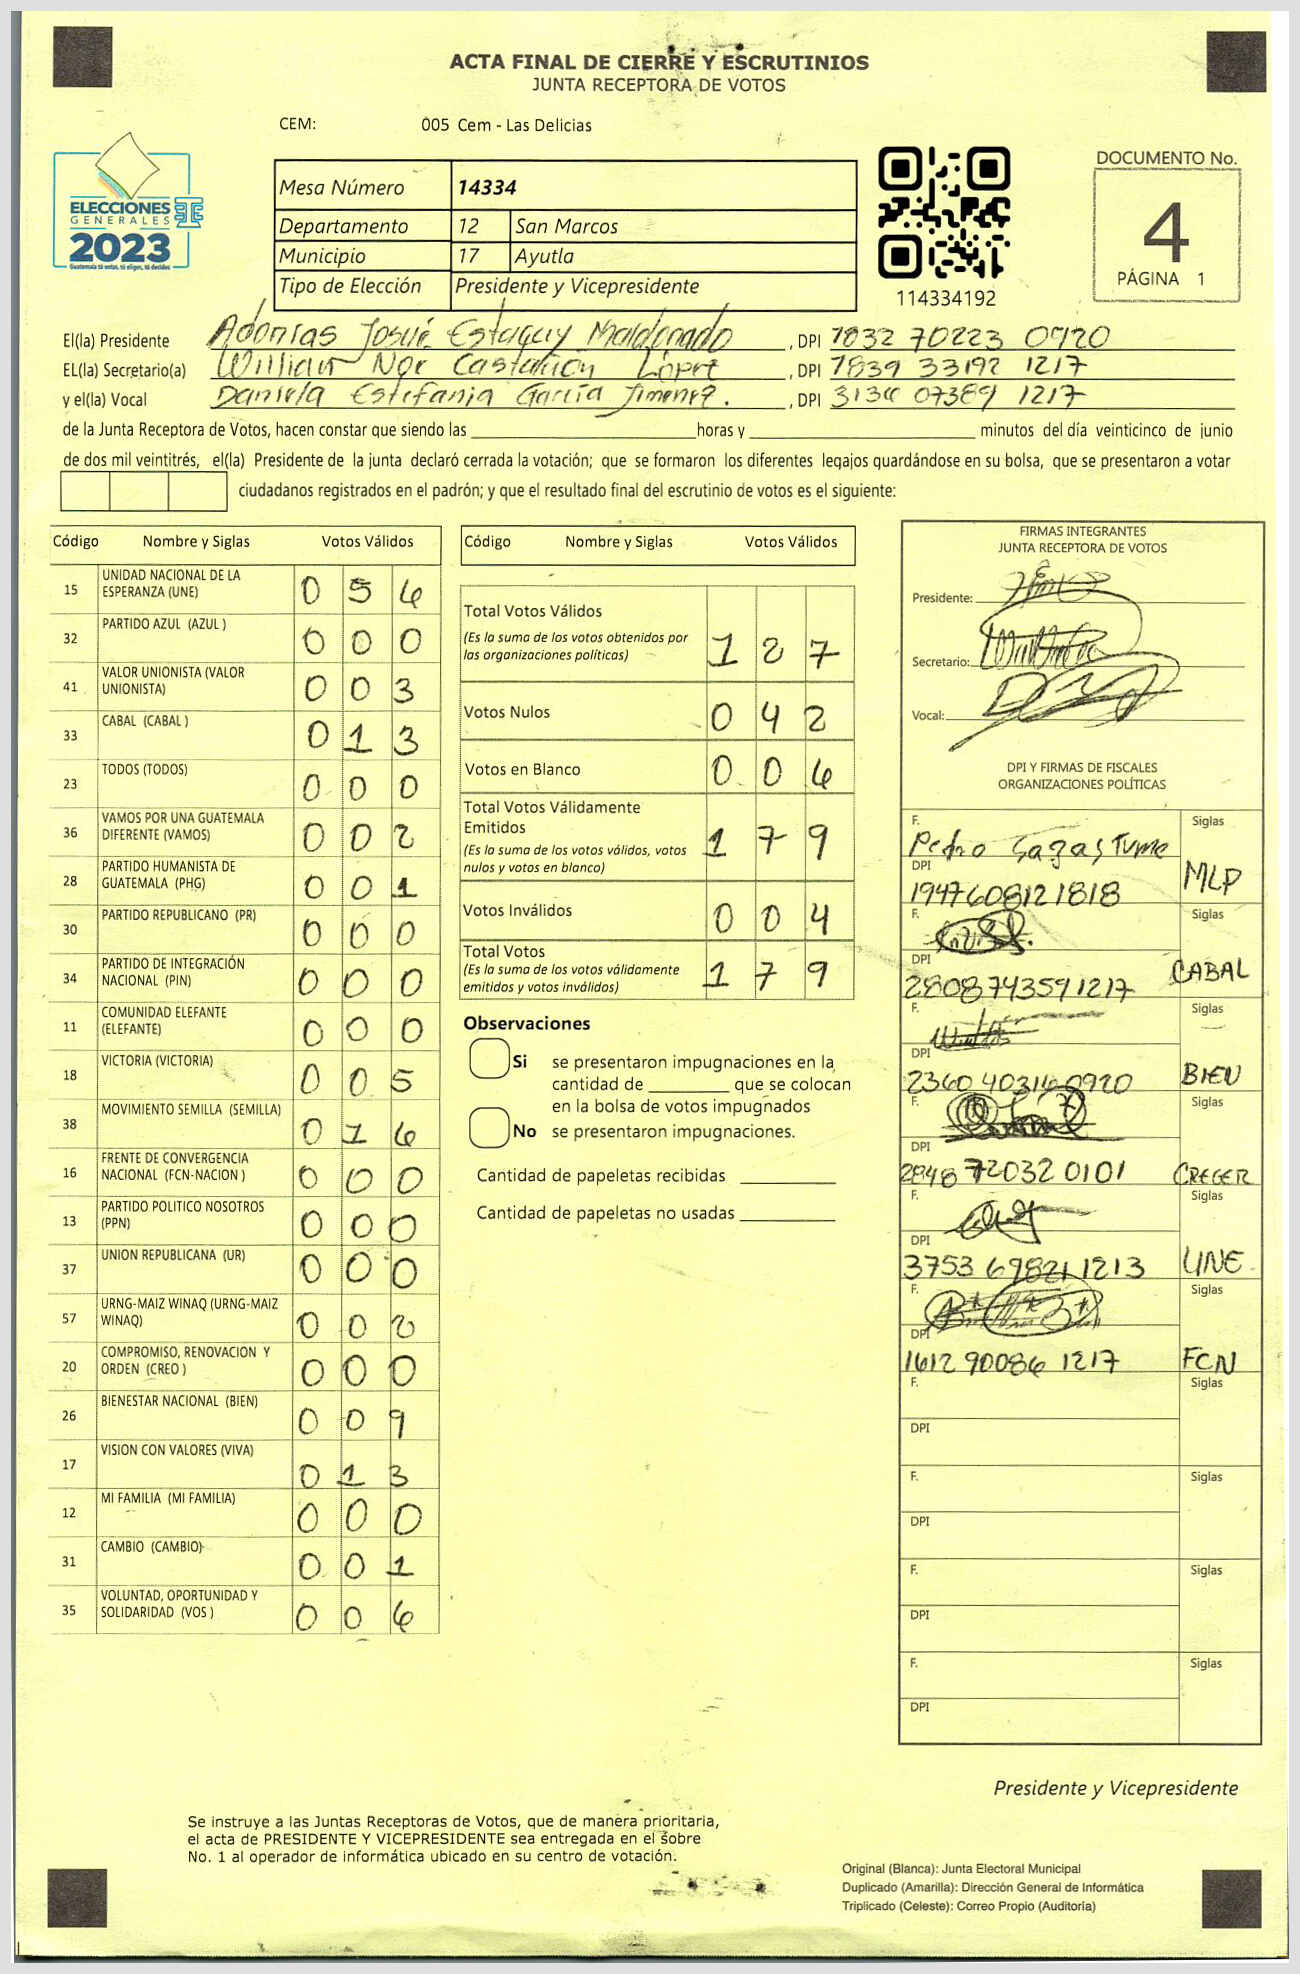 ACTA FINAL DE CIERRE Y ESCRUTINIOS
JUNTA RECEPTORA DE VOTOS
CEM: 005 Cem - Las Delicias
ELECCIONES
GENERALES
2023
Guatemala tú votas, tú eliges, tú decides
Mesa Número 14334
Departamento 12 San Marcos
Municipio 17 Ayutla
Tipo de Elección Presidente y Vicepresidente
114334192
DOCUMENTO No.
4
PÁGINA 1
El(la) Presidente Adonias Josué Estaquy Maldonado, DPI 1832 70223 0920
EL(la) Secretario(a) William Noe Castañon López, DPI 1839 33192 1217
y el(la) Vocal Daniela Estefania García Jimenez., DPI 3136 07389 1217
de la Junta Receptora de Votos, hacen constar que siendo las horas y minutos del día veinticinco de junio
de dos mil veintitrés, el(la) Presidente de la junta declaró cerrada la votación; que se formaron los diferentes legajos guardándose en su bolsa, que se presentaron a votar
ciudadanos registrados en el padrón; y que el resultado final del escrutinio de votos es el siguiente:
Código Nombre y Siglas Votos Válidos
15 UNIDAD NACIONAL DE LA ESPERANZA (UNE) 0 5 6
32 PARTIDO AZUL (AZUL ) 0 0 0
41 VALOR UNIONISTA (VALOR UNIONISTA) 0 0 3
33 CABAL (CABAL ) 0 1 3
23 TODOS (TODOS) 0 0 0
36 VAMOS POR UNA GUATEMALA DIFERENTE (VAMOS) 0 0 2
28 PARTIDO HUMANISTA DE GUATEMALA (PHG) 0 0 1
30 PARTIDO REPUBLICANO (PR) 0 0 0
34 PARTIDO DE INTEGRACIÓN NACIONAL (PIN) 0 0 0
11 COMUNIDAD ELEFANTE (ELEFANTE) 0 0 0
18 VICTORIA (VICTORIA) 0 0 5
38 MOVIMIENTO SEMILLA (SEMILLA) 0 1 6
16 FRENTE DE CONVERGENCIA NACIONAL (FCN-NACION ) 0 0 0
13 PARTIDO POLITICO NOSOTROS (PPN) 0 0 0
37 UNION REPUBLICANA (UR) 0 0 0
57 URNG-MAIZ WINAQ (URNG-MAIZ WINAQ) 0 0 2
20 COMPROMISO, RENOVACION Y ORDEN (CREO ) 0 0 0
26 BIENESTAR NACIONAL (BIEN) 0 0 9
17 VISION CON VALORES (VIVA) 0 1 3
12 MI FAMILIA (MI FAMILIA) 0 0 0
31 CAMBIO (CAMBIO) 0 0 1
35 VOLUNTAD, OPORTUNIDAD Y SOLIDARIDAD (VOS ) 0 0 6
Código Nombre y Siglas Votos Válidos
Total Votos Válidos 1 2 7
(Es la suma de los votos obtenidos por
las organizaciones políticas)
Votos Nulos 0 4 2
Votos en Blanco 0 0 6
Total Votos Válidamente
Emitidos 1 7 9
(Es la suma de los votos válidos, votos
nulos y votos en blanco)
Votos Inválidos 0 0 4
Total Votos 1 7 9
(Es la suma de los votos válidamente
emitidos y votos inválidos)
Observaciones
Si se presentaron impugnaciones en la
cantidad de que se colocan
en la bolsa de votos impugnados
No se presentaron impugnaciones.
Cantidad de papeletas recibidas
Cantidad de papeletas no usadas
FIRMAS INTEGRANTES
JUNTA RECEPTORA DE VOTOS
Presidente:
Secretario:
Vocal:
DPI Y FIRMAS DE FISCALES
ORGANIZACIONES POLÍTICAS
F. Pedro Sagastume Siglas
DPI 1947608121818 MLP
F. Siglas
DPI 2808743591217 CABAL
F. Siglas
DPI 2360 40316 0920 BIEN
F. Siglas
DPI 2848 72032 0101 CREGER
F. Siglas
DPI 3753 69821 1213 UNE
F. Siglas
DPI 1612 90086 1217 FCN
F. Siglas
DPI
F. Siglas
DPI
F. Siglas
DPI
F. Siglas
DPI
Presidente y Vicepresidente
Se instruye a las Juntas Receptoras de Votos, que de manera prioritaria,
el acta de PRESIDENTE Y VICEPRESIDENTE sea entregada en el sobre
No. 1 al operador de informática ubicado en su centro de votación.
Original (Blanca): Junta Electoral Municipal
Duplicado (Amarilla): Dirección General de Informática
Triplicado (Celeste): Correo Propio (Auditoría)